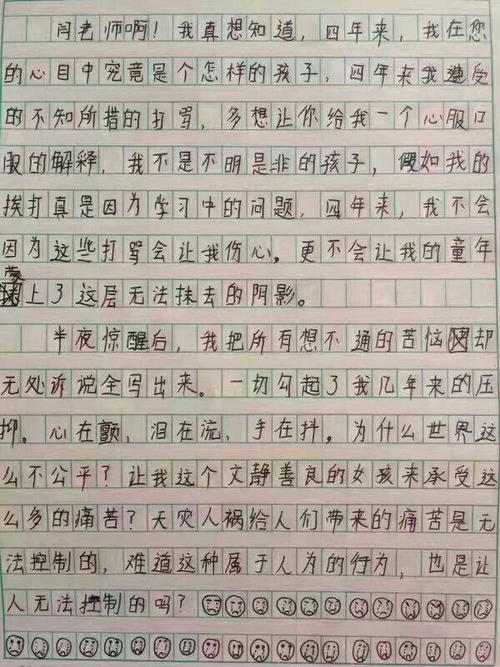 闫老师啊！我真想知道，四年来，我在您
的心目中究竟是个怎样的孩子，四年来我遭受
的不知所措的打骂，多想让你给我一个心服口
服的解释，我不是不明是非的孩子，假如我的
挨打真是因为学习中的问题，四年来，我不会
因为这些打骂会让我伤心。更不会让我的童年
蒙上了这层无法抹去的阴影。
半夜惊醒后，我把所有想不通的苦恼却
无处诉说全写出来。一切勾起了我几年来的压
抑。心在颤，泪在流，手在抖。为什么世界这
么不公平？让我这个文静善良的女孩来承受这
么多的痛苦？天灾人祸给人们带来的痛苦是无
法控制的，难道这种属于人为的行为，也是让
人无法控制的吗？